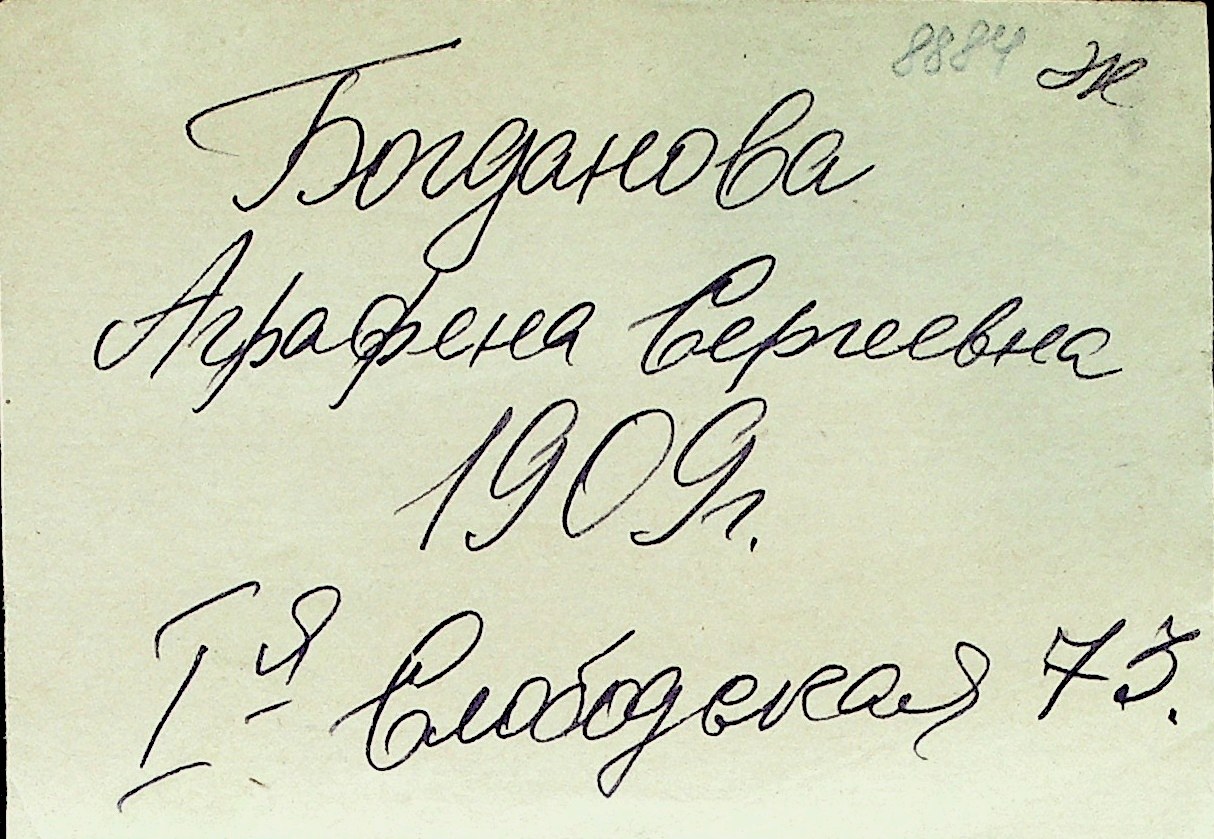 8884 Ж
Богданова
Аграфена Сергеевна
1909г.
I-я Слободская 73.